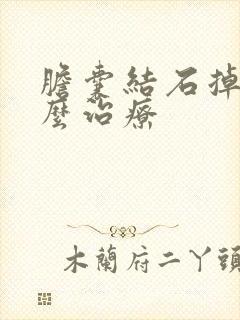 膽囊結石掉
麼治療
木蘭府二丫頭